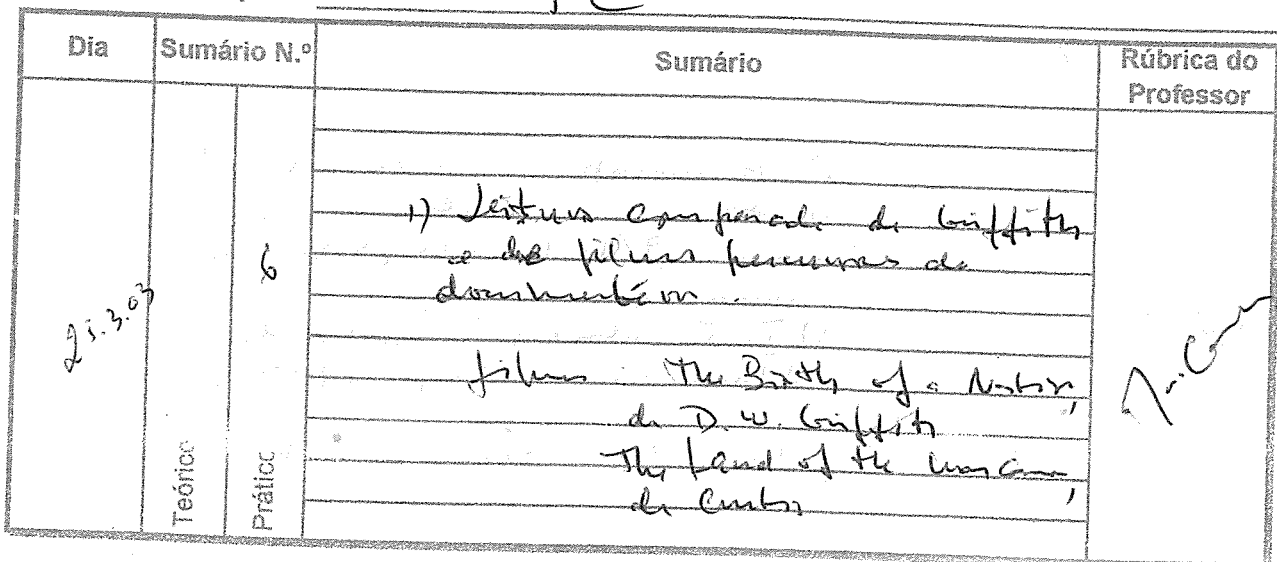 Dia
Sumário N.º
Sumário
Rúbrica do
Professor
25.3.03
Teórico
Prático
6
1) Leitura comparada de Griffith
e de filmes percursores do
documentário.
filmes The Birth of a Nation,
de D. W. Griffith
The Land of the War Canoes,
de Curtis